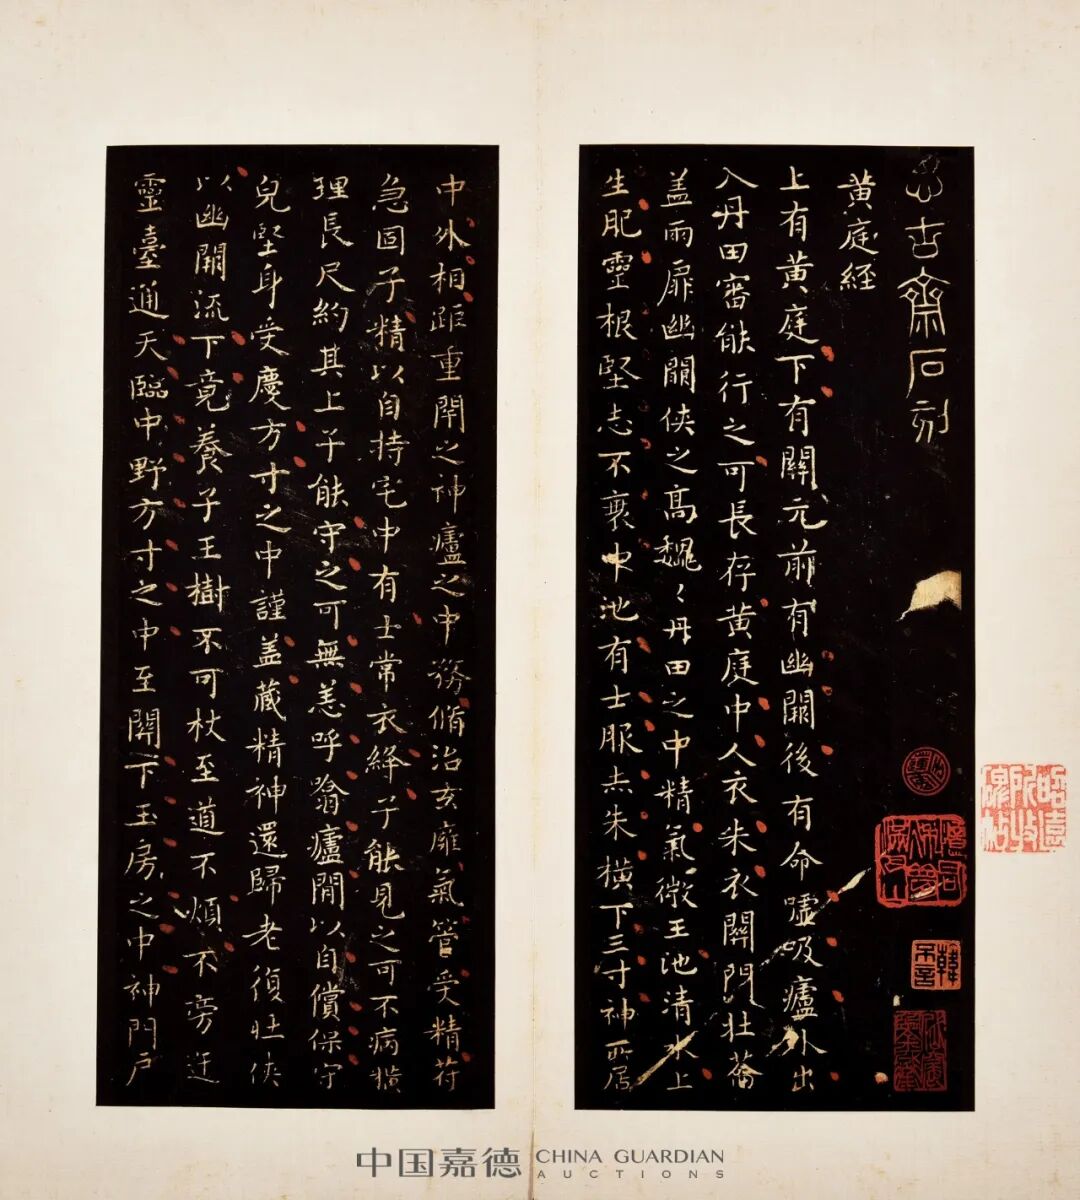 古齋石刻
黄庭経
上有黄庭下有關元前有幽闕後有命嘘吸廬外出
入丹田審能行之可長存黄庭中人衣朱衣關門壯蘥
盖兩扉幽闕俠之高魏〻丹田之中精氣微王池清水上
生肥靈根堅志不衰中池有士服赤朱橫下三寸神所居
中外相距重閈之神廬之中務脩治玄廱氣管受精符
急固子精以自持宅中有士常衣絳子能見之可不病橫
理長尺約其上子能守之可無恙呼翕廬間以自償保守
皃堅身受慶方寸之中謹盖蔵精神還歸老復壯俠
以幽闕流下竟養子王樹不可杖至道不煩不旁迕
靈臺通天臨中野方寸之中至關下玉房之中神門户
昭遠所收碑帖
中国嘉德 CHINA GUARDIAN
AUCTIONS